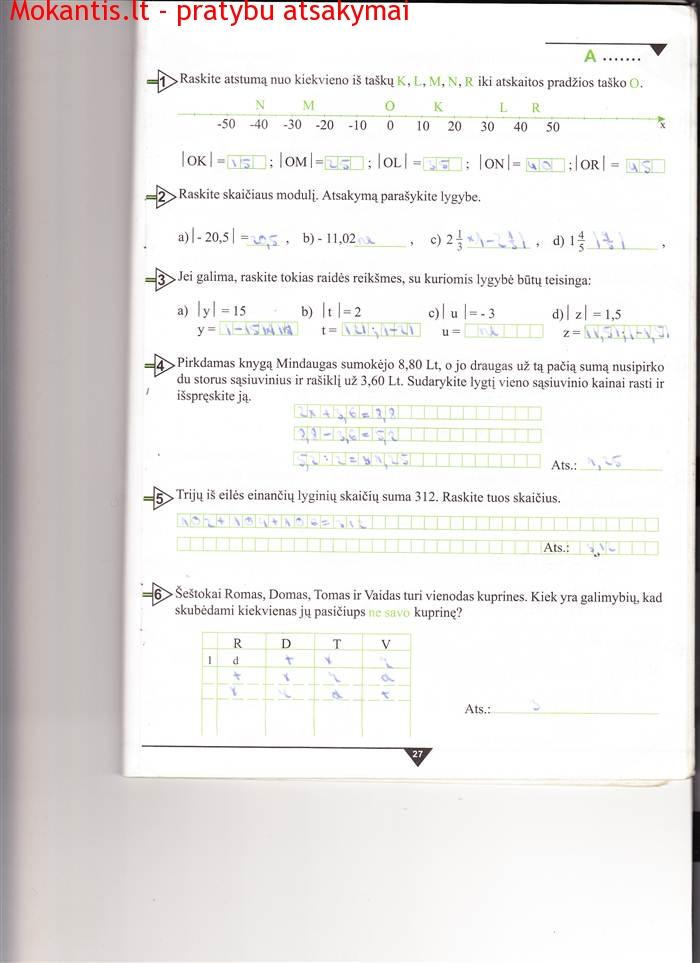 Mokantis.lt - pratybu atsakymai
A .......
1 Raskite atstumą nuo kiekvieno iš taškų K, L, M, N, R iki atskaitos pradžios taško O.
N M O K L R
-50 -40 -30 -20 -10 0 10 20 30 40 50 x
|OK| = 15 ; |OM| = 25 ; |OL| = 35 ; |ON| = 40 ; |OR| = 45
2 Raskite skaičiaus modulį. Atsakymą parašykite lygybe.
a) |- 20,5| = 20,5 , b) - 11,02 , c) 2 1/3 , d) 1 4/5 ,
3 Jei galima, raskite tokias raidės reikšmes, su kuriomis lygybė būtų teisinga:
a) |y| = 15 b) |t| = 2 c) | u | = - 3 d) | z | = 1,5
y = t = u = z =
4 Pirkdamas knygą Mindaugas sumokėjo 8,80 Lt, o jo draugas už tą pačią sumą nusipirko
du storus sąsiuvinius ir rašiklį už 3,60 Lt. Sudarykite lygtį vieno sąsiuvinio kainai rasti ir
išspręskite ją.
2x + 3,6 = 8,8
8,8 - 3,6 = 5,2
5,2 : 2 =
Ats.: 1,25
5 Trijų iš eilės einančių lyginių skaičių suma 312. Raskite tuos skaičius.
102 + 104 + 106 = 312
Ats.:
6 Šeštokai Romas, Domas, Tomas ir Vaidas turi vienodas kuprines. Kiek yra galimybių, kad
skubėdami kiekvienas jų pasičiups ne savo kuprinę?
R D T V
1 d
Ats.: 3
27